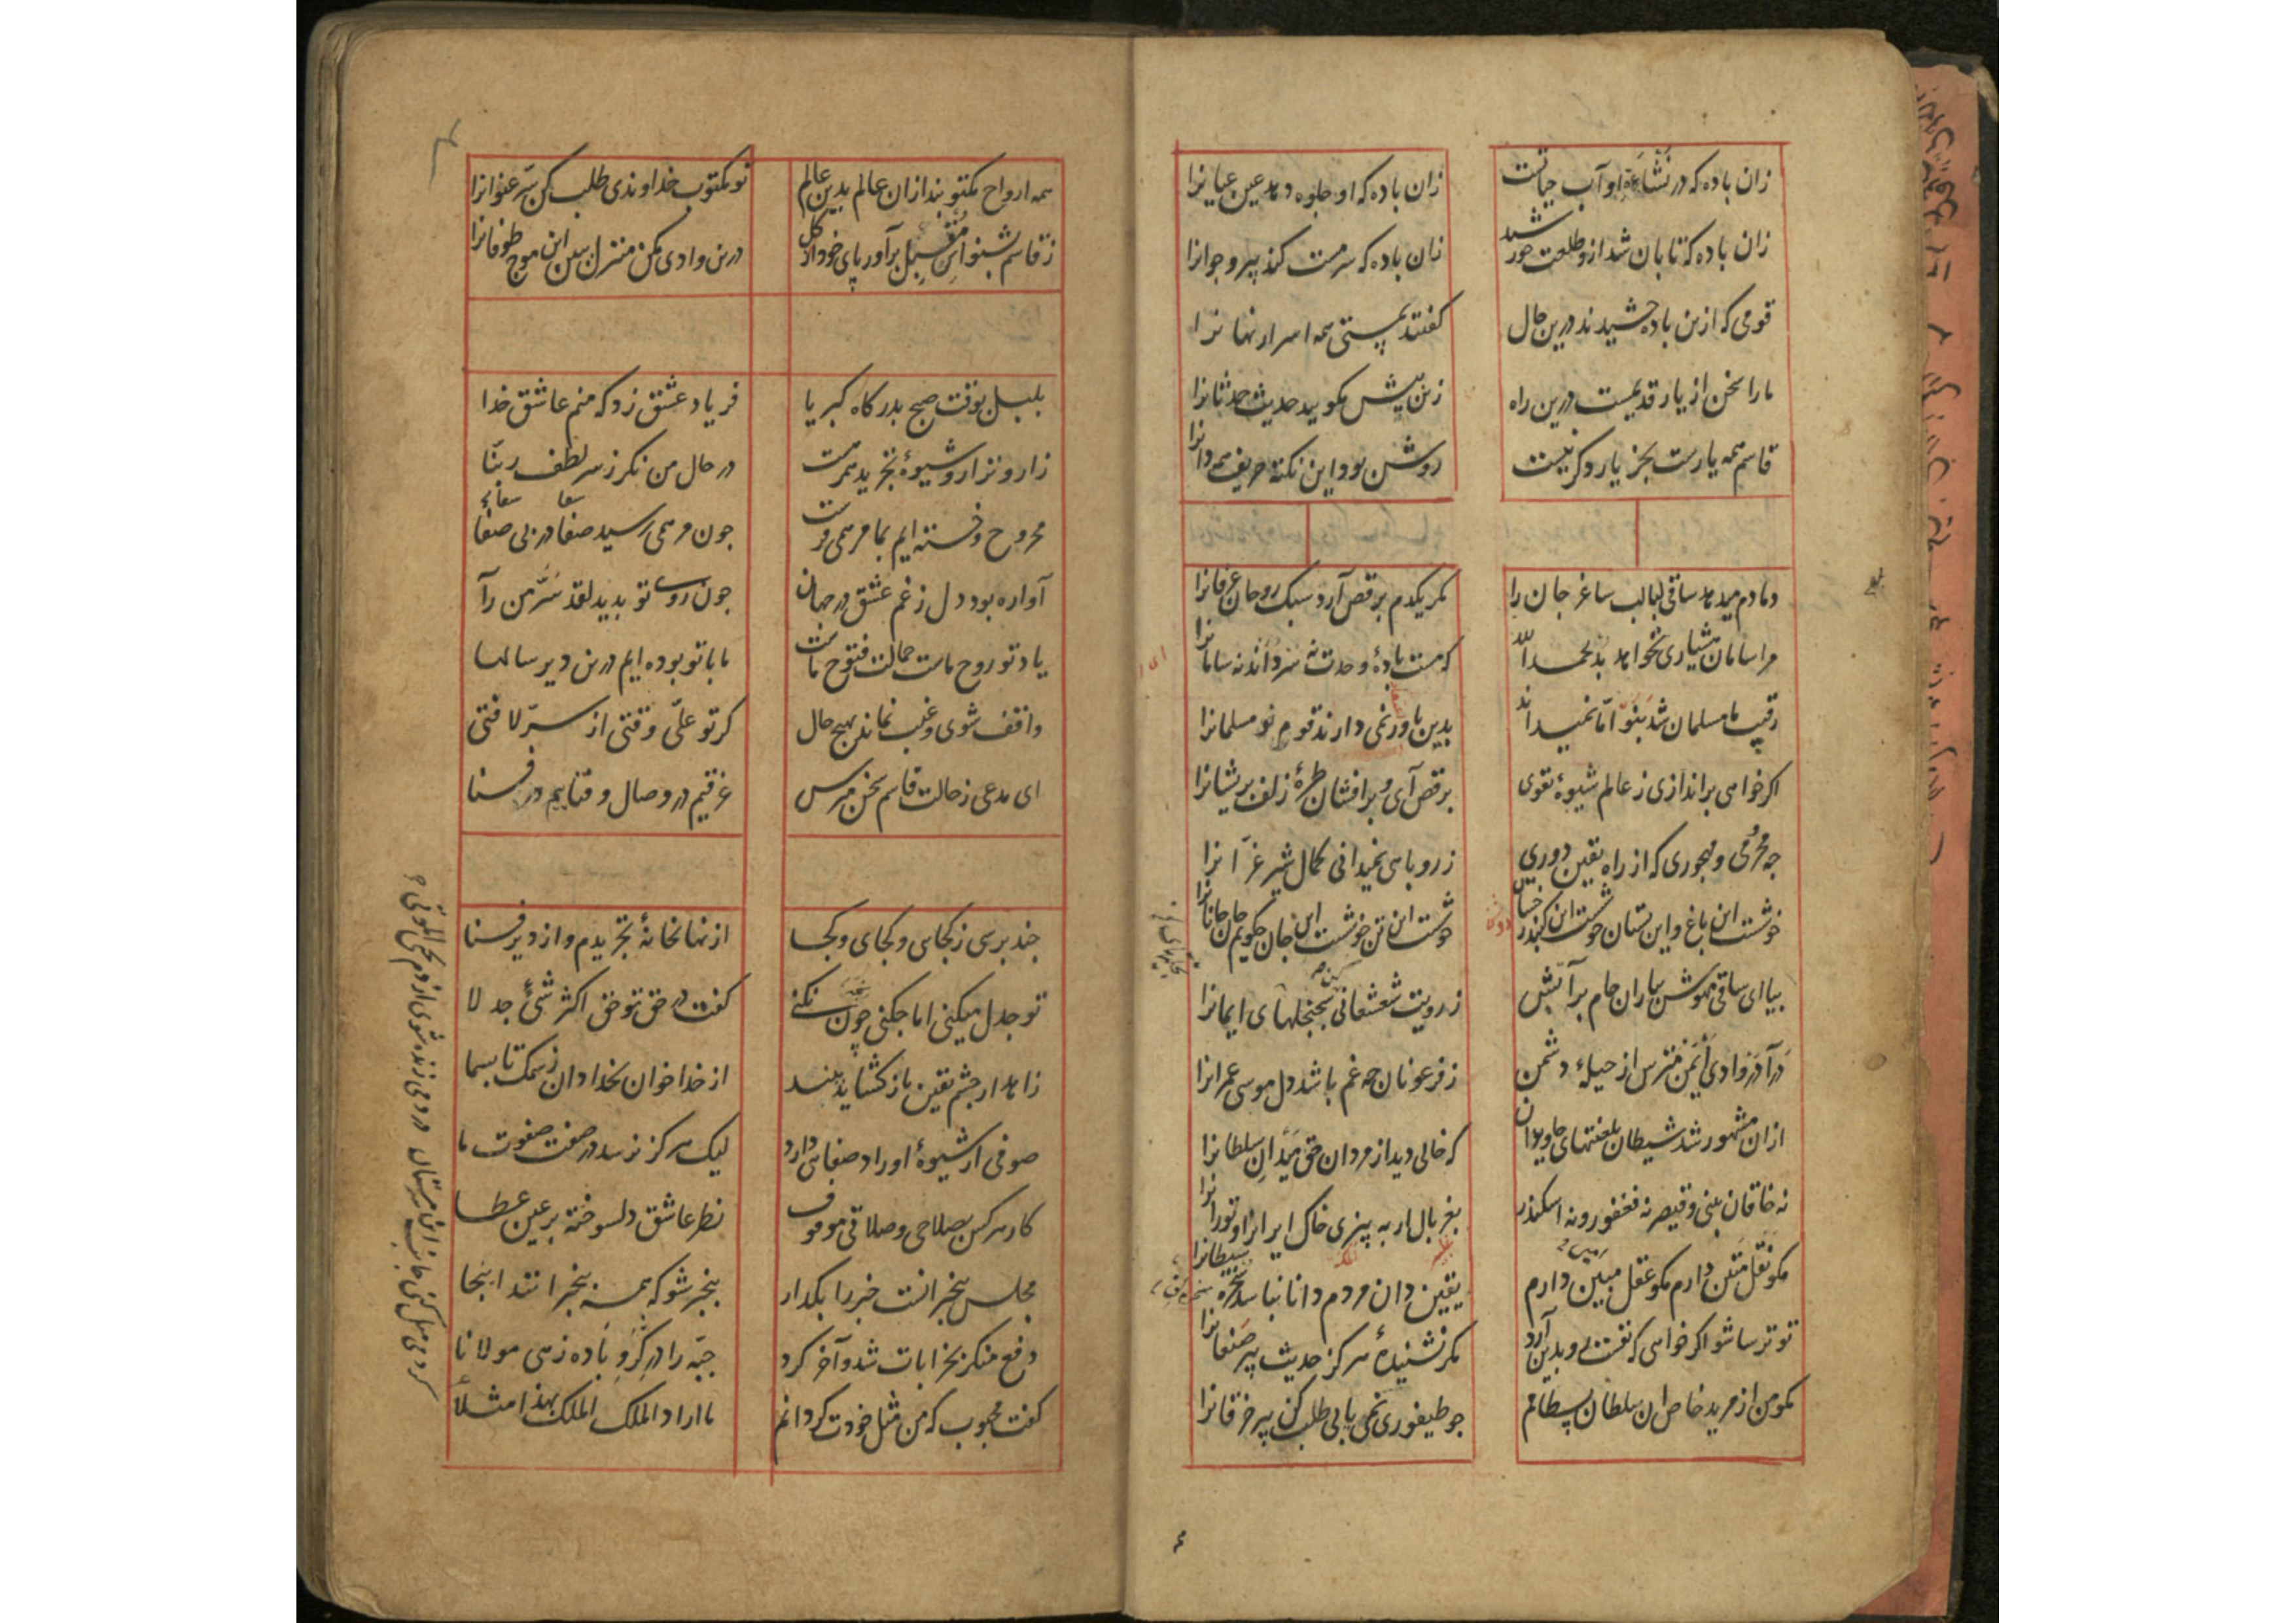 زان باده که در نشاءهٔ او آب حیاتست
زان باده که او جلوه دهد عین عیانرا
زان باده که تابان شد ازو طلعت خورشید
زان باده که سرمست کند پیر و جوانرا
قومی که ازین باده چشیدند درین حال
کفتند بمستی همه اسرار نهانرا
ما را سخن از یار قدیمست درین راه
زین پیش مکویید حدیث حدثانرا
قاسم همه یارست بجز یار دکر نیست
روشن بود این نکته حریف همه دانرا
دمادم میدهد ساقی لبالب ساغر جان را
مکر یکدم برقص آرد سبک روحان عرفانرا
مرا سامان هشیاری نخواهد بد بحمدالله
که مست بادهٔ وحدت نه سر داند نه سامانرا
رقیب ما مسلمان شد بنوّ امّا نمیداند
بدین باور نمی دارند قوم نو مسلمانرا
اکر خواهی براندازی ز عالم شیوهٔ تقوی
برقص آی و برافشان طرهٔ زلف پریشانرا
چه محرومی و مهجوری که از راه یقین دوری
ز روباهی نمیدانی کمال شیر غرّانرا
خوشست این باغ و این بستان خوشست این کنبد
خوشست این تن خوشست این جان چکویم جان جانانرا
بیا ای ساقی مهوش بیاران جام پر آتش
ز رویت شعشعانی سجنجلهای ایمانرا
درآ در وادی ایمن مترس از حیلهٔ دشمن
ز فرعونان چه غم باشد دل موسی عمرانرا
ازان مشهور شد شیطان بلعنتهای جاویدان
که خالی دید از مردان حق میدان سلطانرا
نه خاقان بینی و قیصر نه فغفور و نه اسکندر
بغربال ار به پیزی خاک ایرانرا و تورانرا
مکو نقل متین دارم مکو عقل مبین دارم
یقین دان مردم دانا نباشد سخره شیطانرا
تو ترسا شو اکر خواهی که نفست رو بدین آرد
مکر نشنیدهٔ هرکز حدیث پیر صنعانرا
مکو من از مرید خاص ان سلطان بسطامم
چو طیفوری نمی یابی طلب کن پیر خرقانرا
همه ارواح مکتوبند ازان عالم بدین عالم
تو مکتوب خداوندی طلب کن سرّ عنوانرا
ز قاسم بشنو این مقبل برآور پای خود از کل
درین وادی مکن منزل ببین این موج طوفانرا
بلبل بوقت صبح بدرکاه کبریا
فریاد عشق زد که منم عاشق خدا
زار و نزار و شیوهٔ تجرید سرمست
در حال من نکر ز سر لطف ربّنا
مجروح و خسته ایم بما مرهمی فرست
چون مرهمی رسید صفا در پی صفا
آواره بود دل ز غم عشق در جهان
چون روی تو بدید لقد سرّ من رآ
یاد تو روح ماست جمالت فتوح ماست
ما با تو بوده ایم درین دیر سالها
واقف شوی و غیب نماند بهیچ حال
کر تو علّی وقتی از سرّ لا فتی
ای مدعی ز حالت قاسم سخن مپرس
غرقیم در وصال و فناییم در فنا
چند پرسی ز کجایی و کجای و کجا
از نهانخانهٔ تجریدم و از دیر فنا
تو جدل میکنی اما چکنی چون نکنی
کفت در حق تو حق اکثر شیئ جدلا
زاهد ار چشم یقین باز کشاید بیند
از خدا خوان بخدا دان ز سمک تا بسما
صوفی از شیوهٔ اوراد صفایی دارد
لیک هرکز نرسد در صفت صفوت ما
کار هر کس بصلاحی و صلاتی موقوف
نظر عاشق دلسوخته بر عین عطا
مجلس بیخبرانست خبر را بکذار
بیخبر شو که همه بیخبرانند اینجا
دفع منکر بخرابات شد و آخر کرد
جبّه را در کرو باده زهی مولانا
کفت محبوب که من مثل خودت کردانم
ما اراد الملک الملک بهذا مثلاً